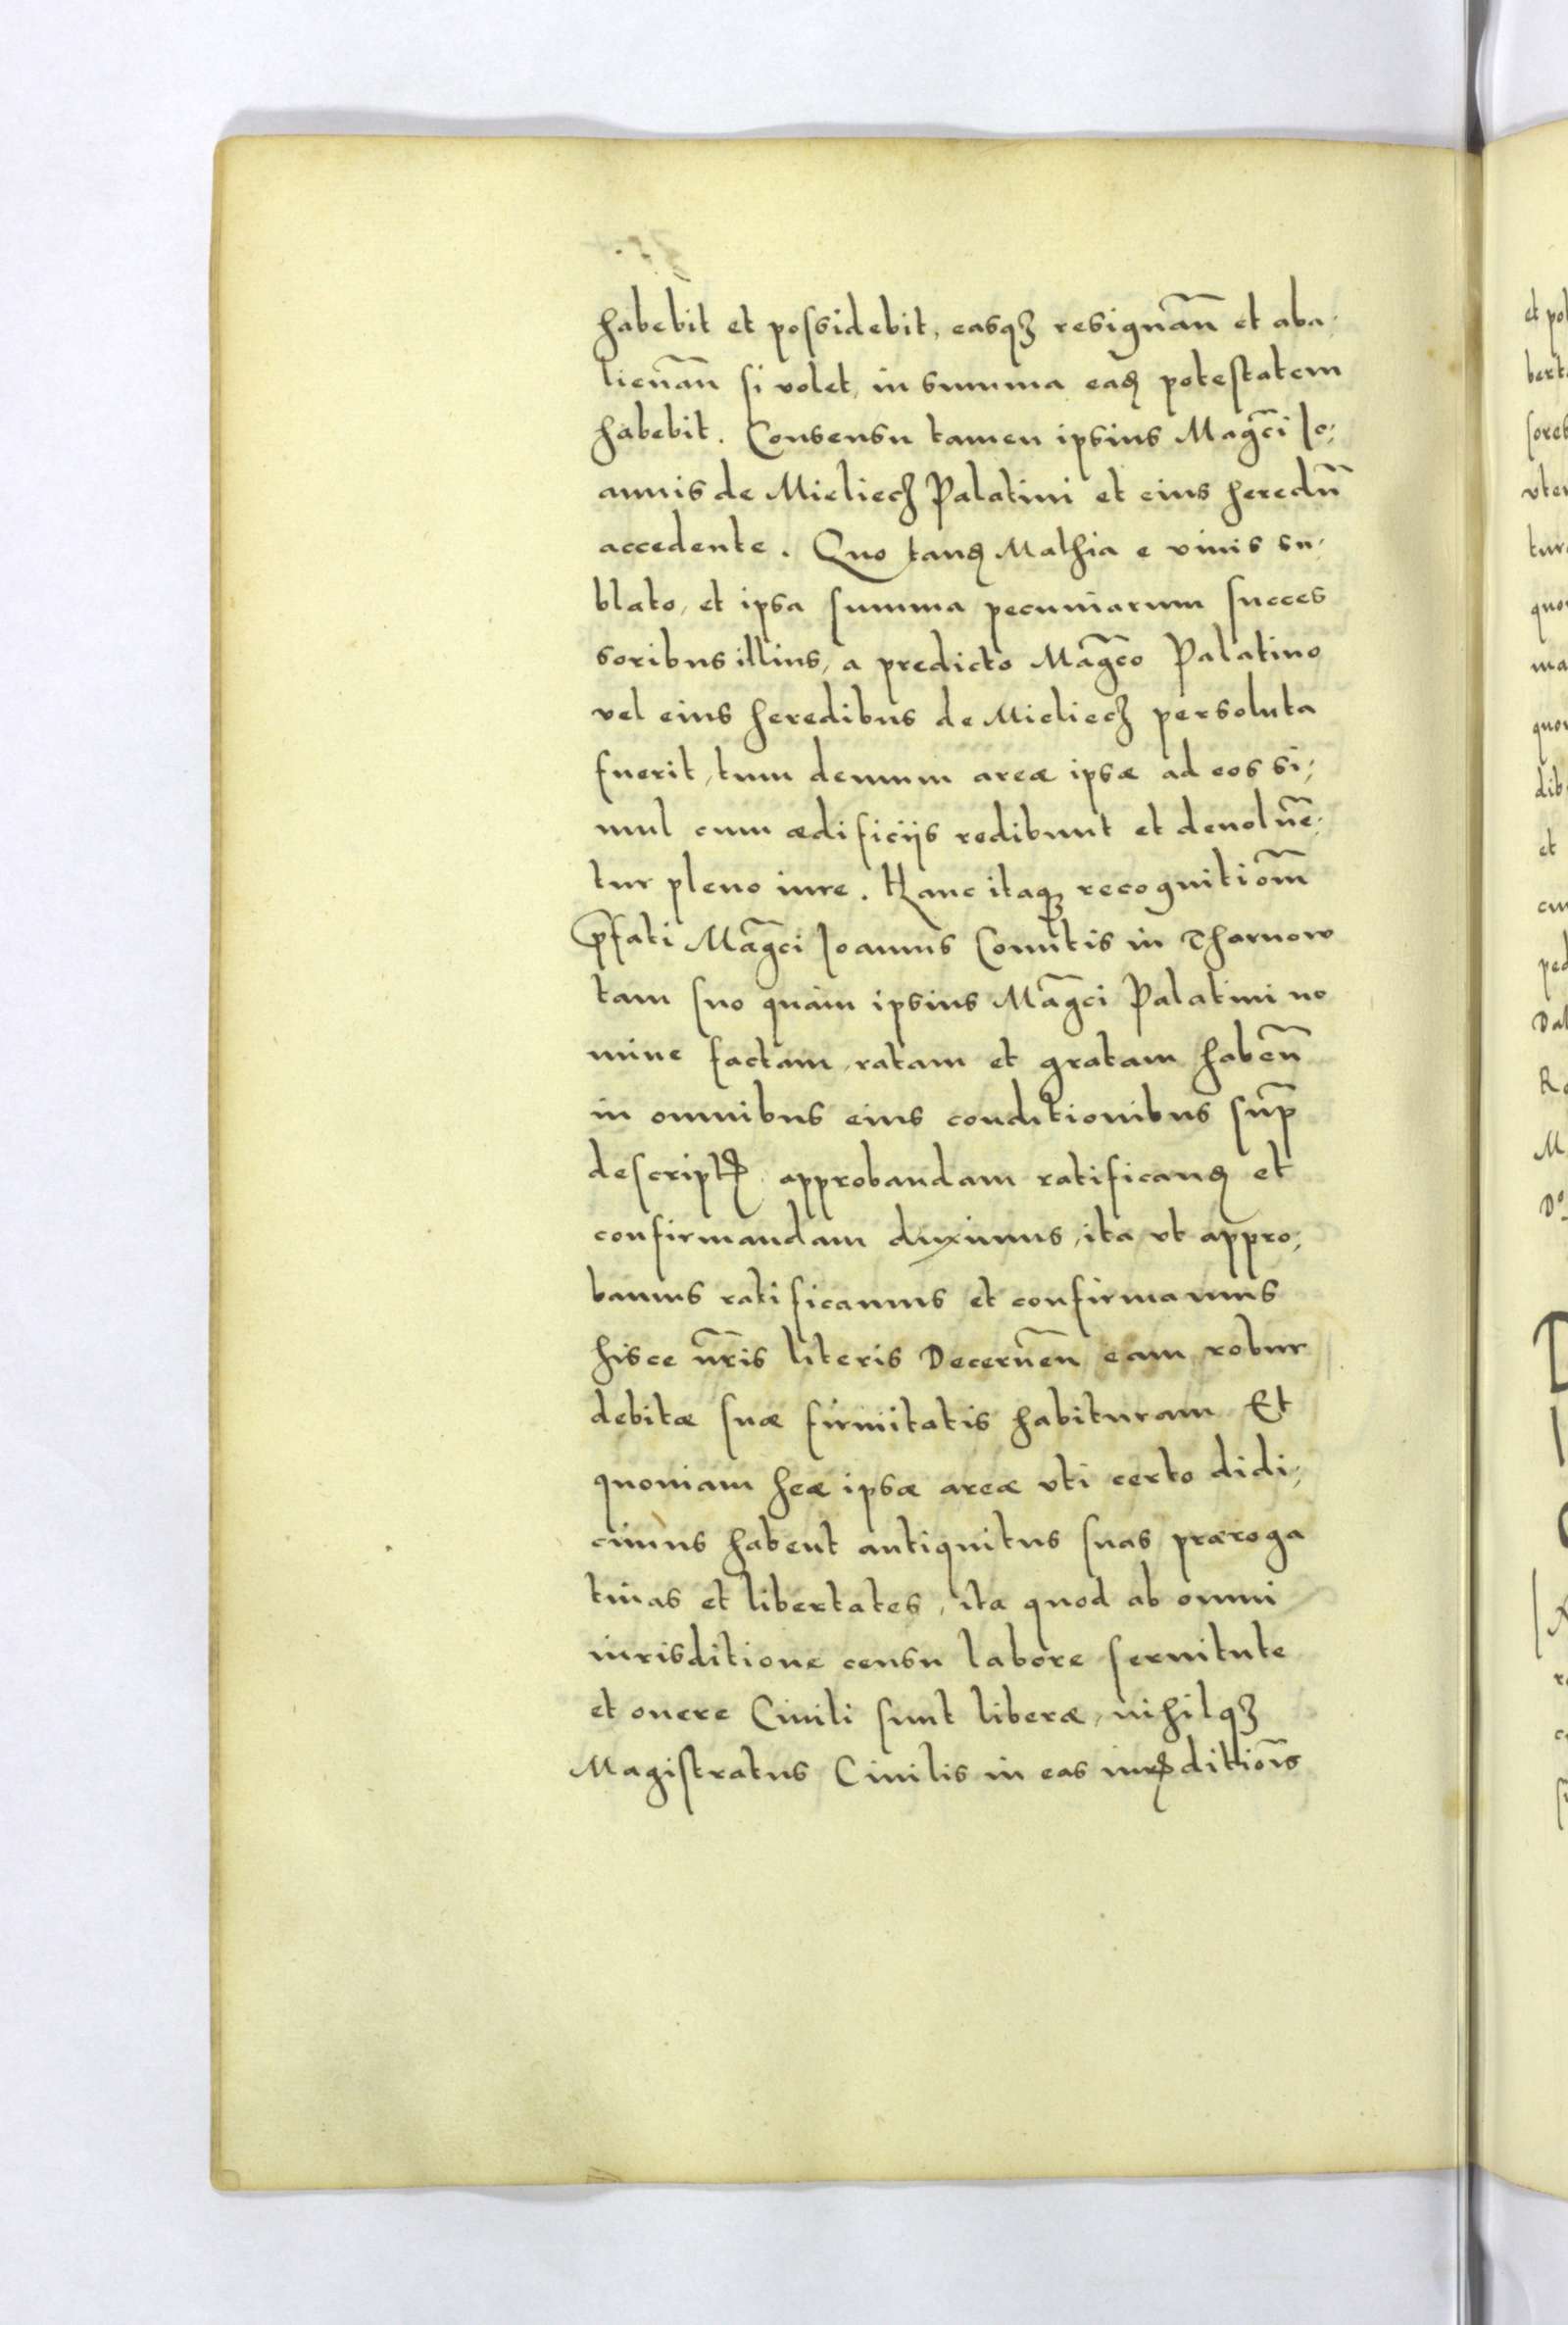 habebit et possidebit, easqꝫ resignan̄ et aba-
lienan̄ si volet, in summa eadꝫ potestatem
habebit. Consensu tamen ipsius Magc̄i Jo-
annis de Mieliecz Palatini et eius heredū
accedente. Quo tandꝫ Mathia e viuis su-
blato, et ipsa summa pecuniarum succes
soribus illius, a predicto Magc̄o Palatino
vel eius heredibus de Mieliecz persoluta
fuerit, tum demum areæ ipsæ ad eos si-
mul cum ædificijs redibunt et deuoluē-
tur pleno iure. Hanc itaqꝫ recognitiom̄
p̄fati Magc̄i Joannis Comitis in Tharnow
tam suo quàm ipsius Magc̄i Palatini no
mine factam, ratam et gratam haben̄
in omnibus eius conditionibus sup̄
descriptꝭ approbandam ratificandꝫ et
confirmandam duximus, ita vt appro-
bamus ratificamus et confirmamus
hisce nr̄is literis Decernen̄ eam robur
debitæ suæ firmitatis habituram Et
quoniam heæ ipsæ areæ vti certo didi-
cimus habent antiquitus suas præroga
tiuas et libertates, ita quod ab omni
iurisditione censu labore seruitute
et onere Ciuili sunt liberæ, nihilqꝫ
Magistratus Ciuilis in eas iurꝭditiōis